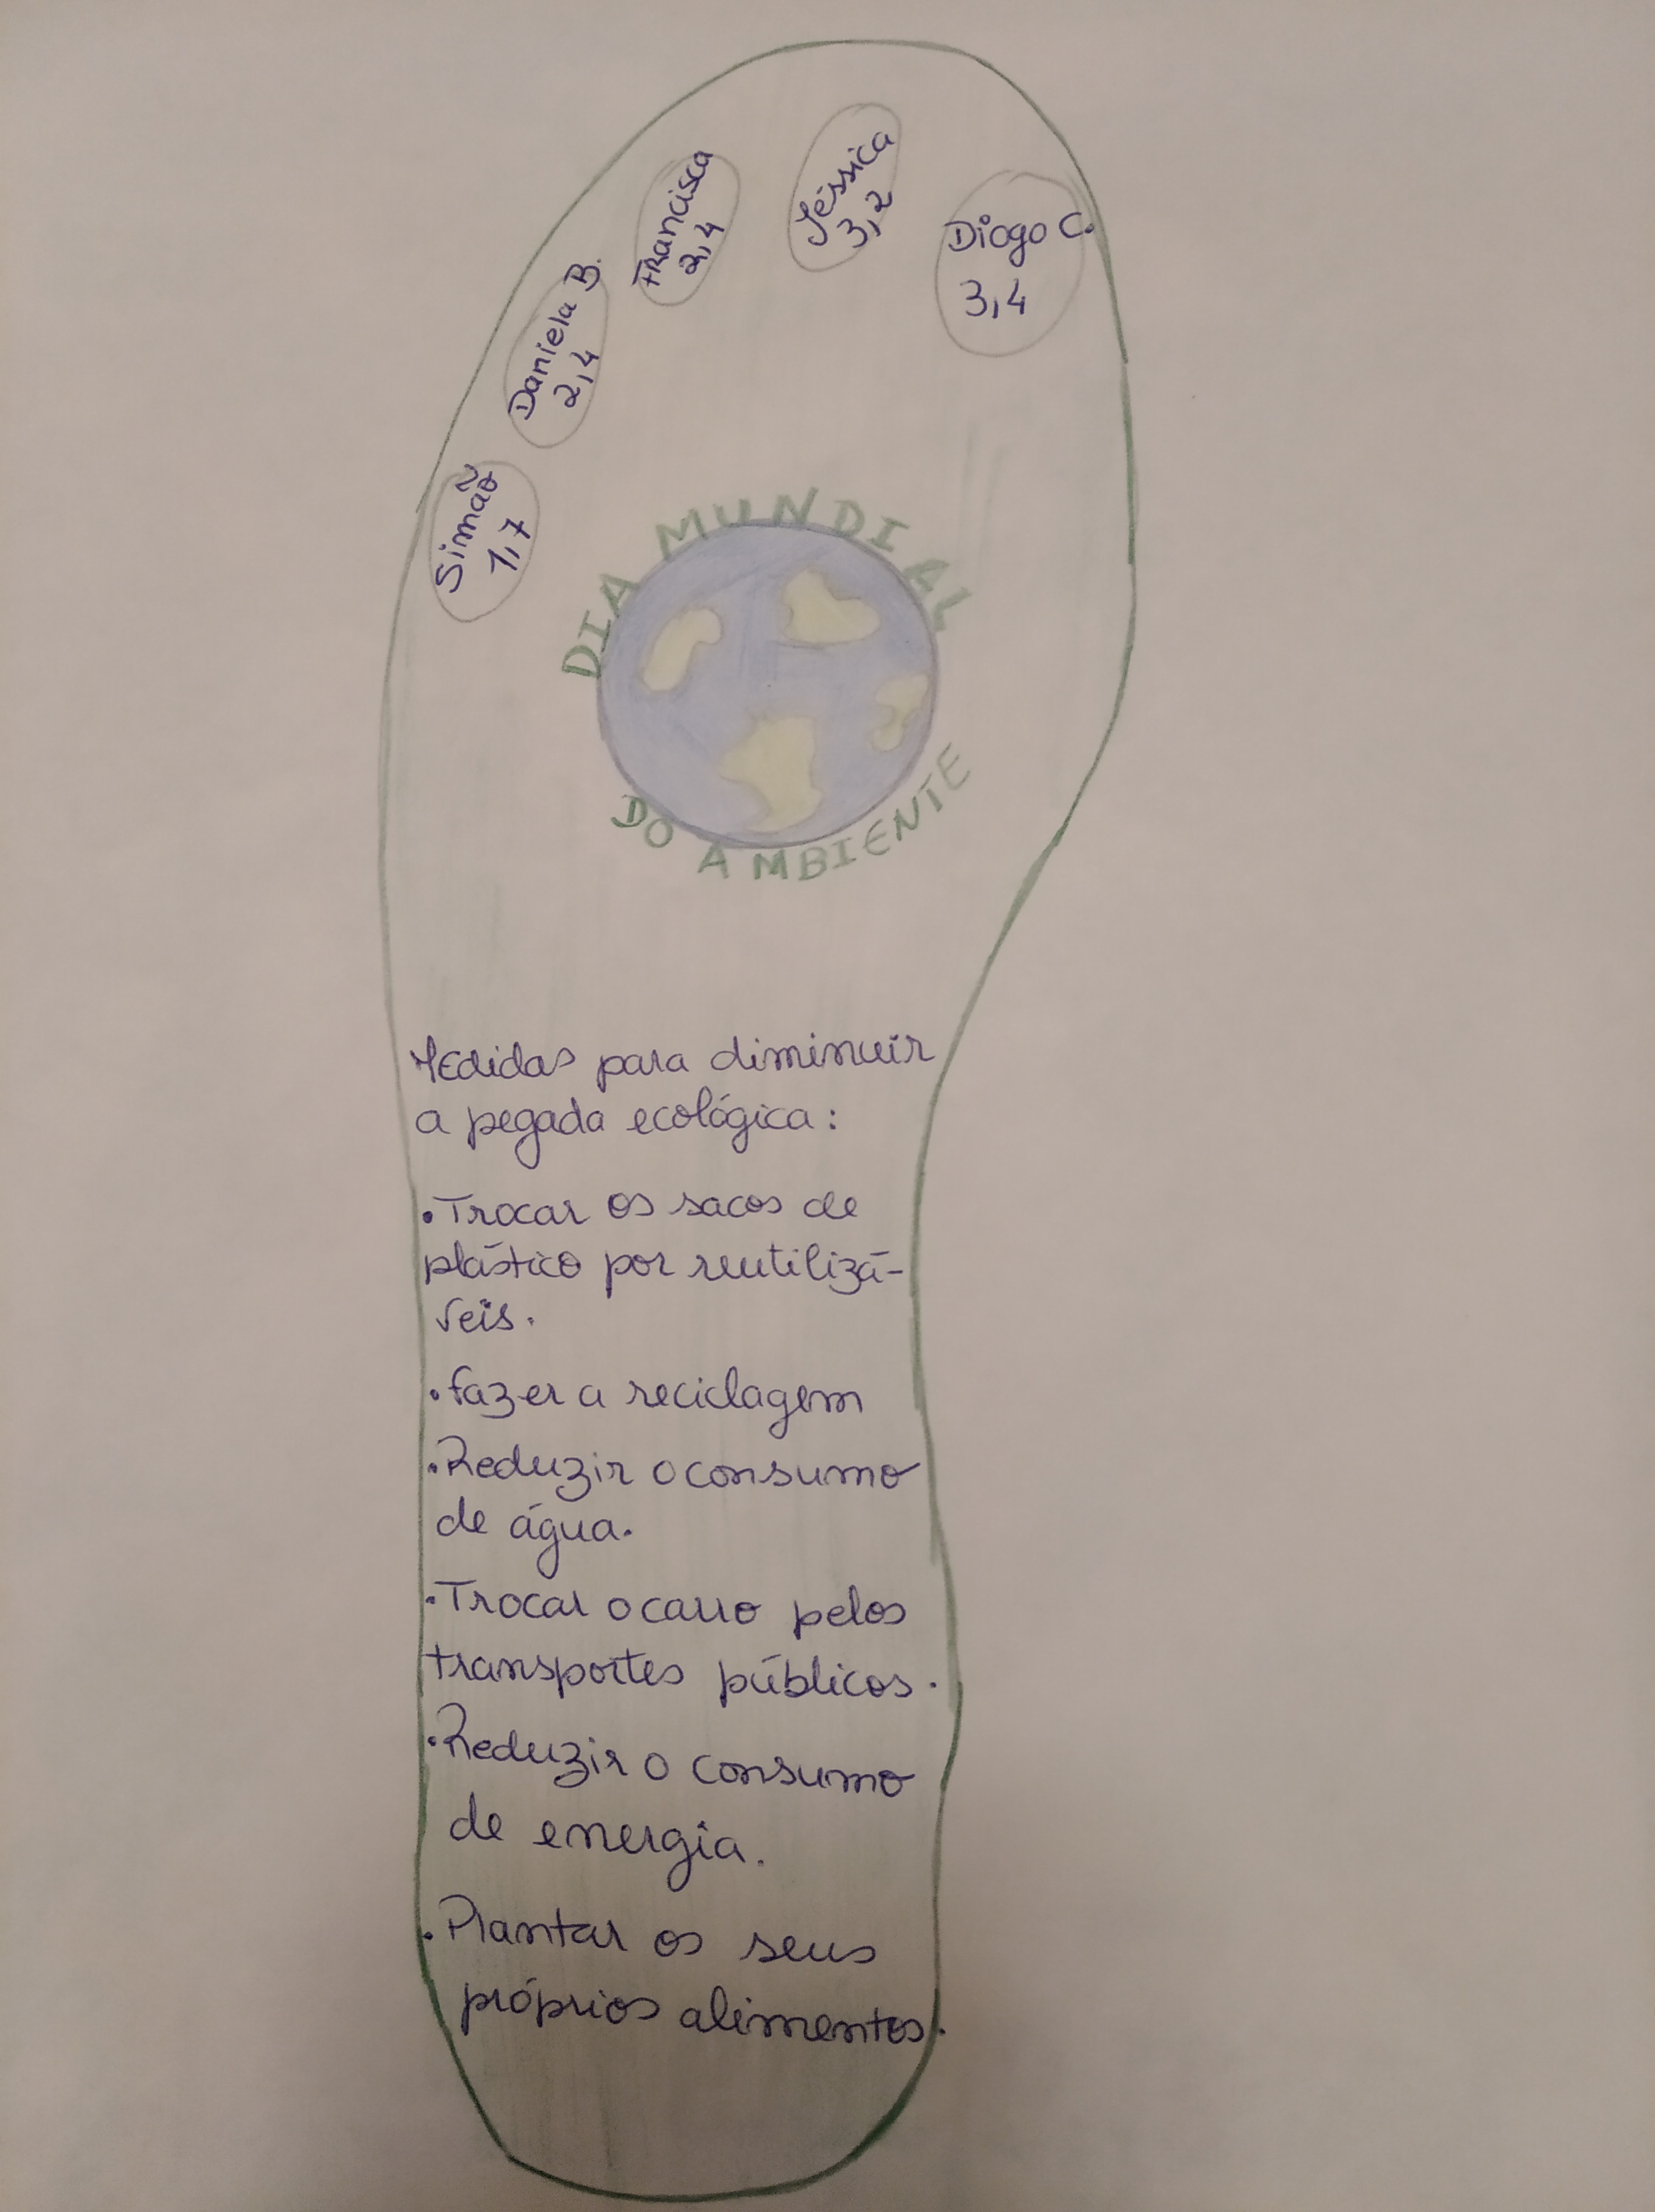 Simão
1,7
Daniela B.
2,4
Francisca
2,4
Jéssica
3,2
Diogo C.
3,4
DIA MUNDIAL
DO AMBIENTE
Medidas para diminuir
a pegada ecológica:
• Trocar os sacos de
plástico por reutilizá-
veis.
• fazer a reciclagem
• Reduzir o consumo
de água.
• Trocar o carro pelos
transportes públicos.
• Reduzir o consumo
de energia.
• Plantar os seus
próprios alimentos.